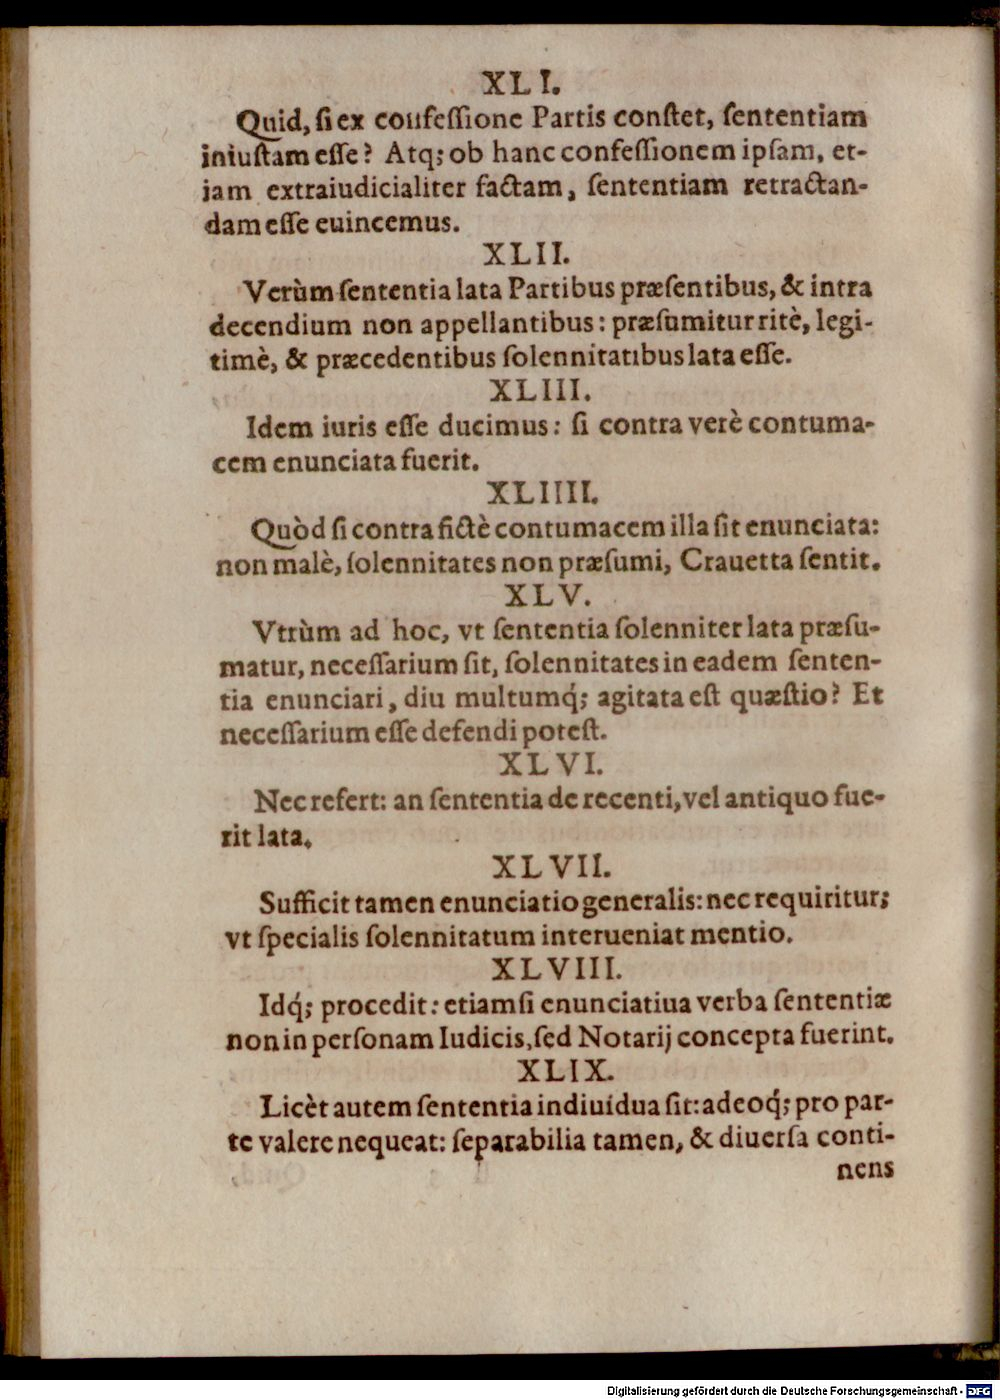 XLI.
Quid, ſi ex confeſſione Partis conſtet, ſententiam
iniuſtam eſſe? Atq; ob hanc confeſſionem ipſam, et-
iam extraiudicialiter factam, ſententiam retractan-
dam eſſe euincemus.
XLII.
Verùm ſententia lata Partibus præſentibus, & intra
decendium non appellantibus: præſumitur ritè, legi-
timè, & præcedentibus ſolennitatibus lata eſſe.
XLIII.
Idem iuris eſſe ducimus: ſi contra verè contuma-
cem enunciata fuerit.
XLIIII.
Quòd ſi contra fictè contumacem illa ſit enunciata:
non malè, ſolennitates non præſumi, Crauetta ſentit.
XLV.
Vtrùm ad hoc, vt ſententia ſolenniter lata præſu-
matur, neceſſarium ſit, ſolennitates in eadem ſenten-
tia enunciari, diu multumq́; agitata eſt quæſtio? Et
neceſſarium eſſe defendi poteſt.
XLVI.
Nec refert: an ſententia de recenti, vel antiquo fue-
rit lata.
XLVII.
Sufficit tamen enunciatio generalis: nec requiritur;
vt ſpecialis ſolennitatum interueniat mentio.
XLVIII.
Idq́; procedit: etiamſi enunciatiua verba ſententiæ
non in perſonam Iudicis, ſed Notarij concepta fuerint.
XLIX.
Licèt autem ſententia indiuidua ſit: adeoq́; pro par-
te valere nequeat: ſeparabilia tamen, & diuerſa conti-
nens
Digitalisierung gefördert durch die Deutsche Forschungsgemeinschaft - DFG